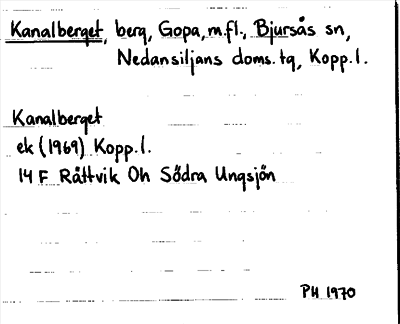 Kanalberget, berg, Gopa, m.fl., Bjursås sn,
Nedansiljans doms.tg, Kopp.l.
Kanalberget
ek (1969) Kopp.l.
14 F Rättvik Oh Södra Ungsjön
PH 1970